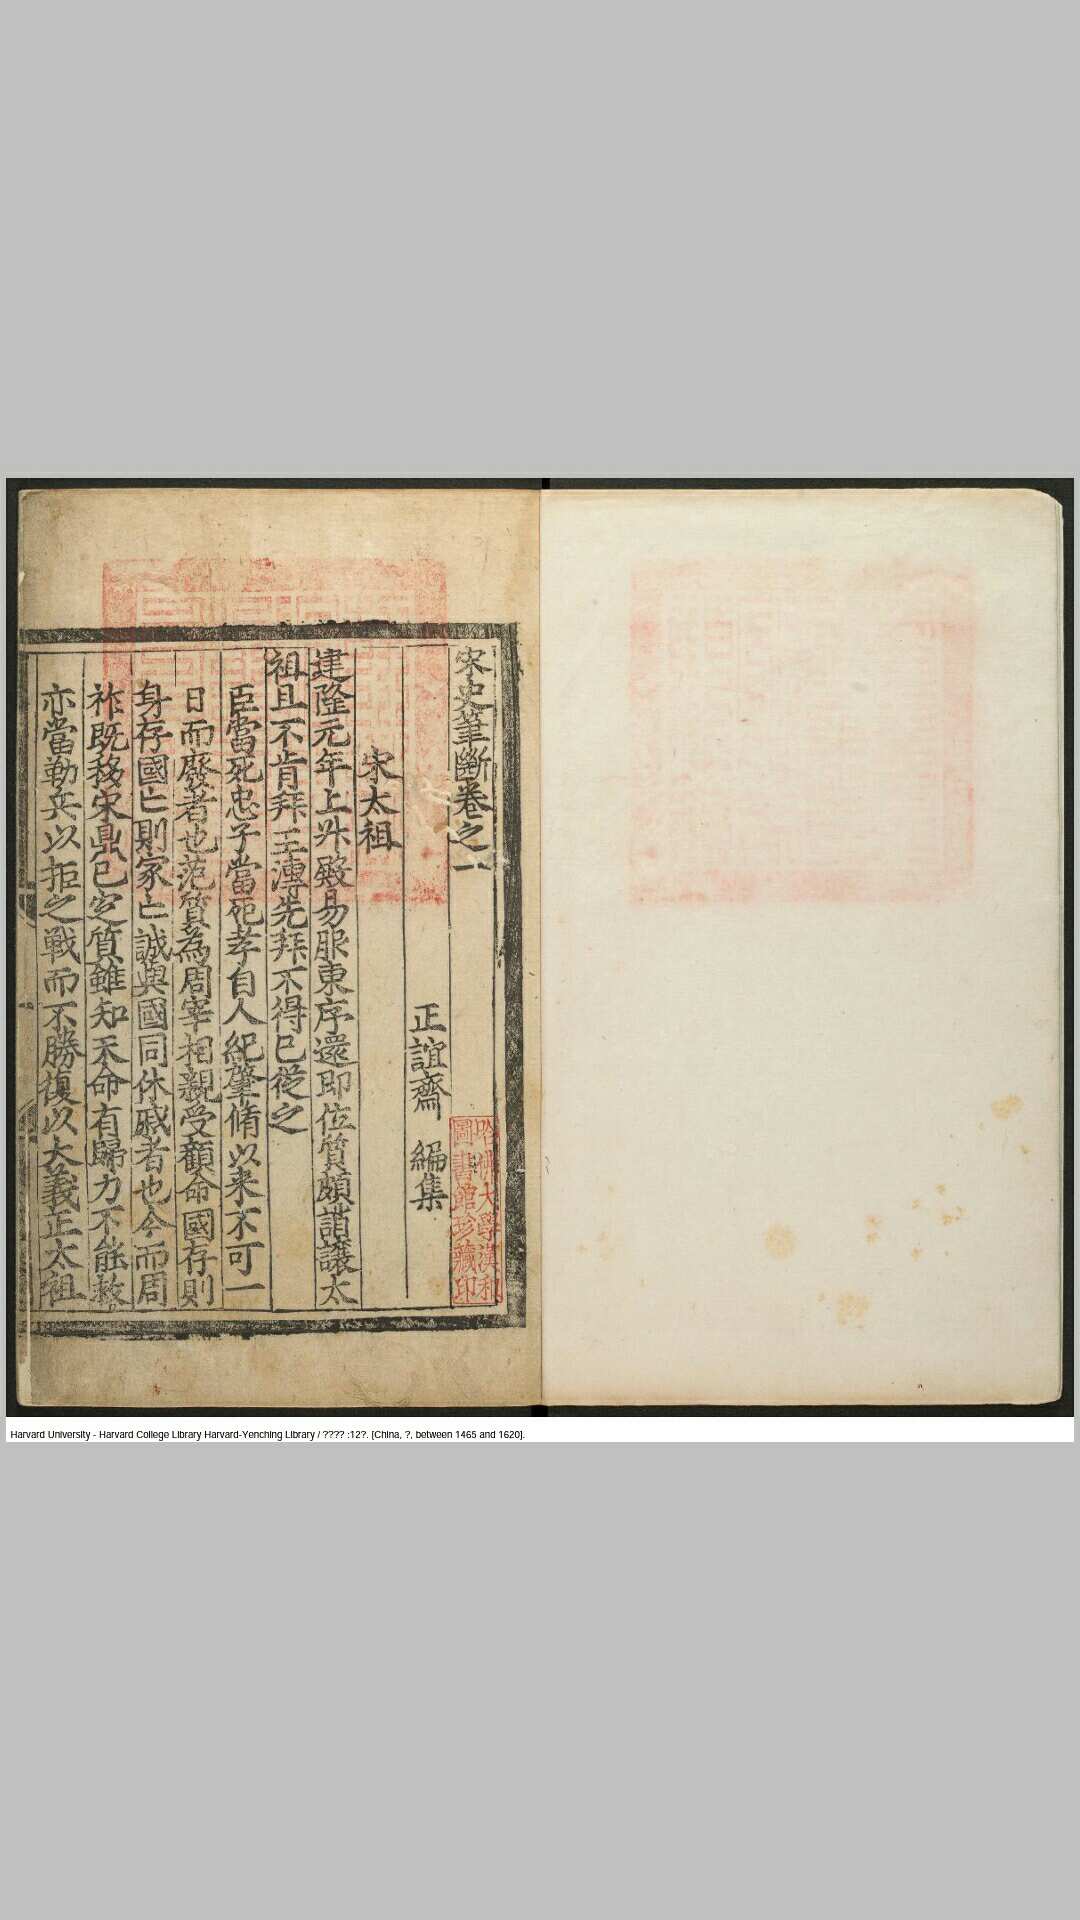 宋史筆斷卷之一
正誼齋　編集
宋太祖
建隆元年上升殿易服東序還即位質頗誚讓太
祖且不肯拜王溥先拜不得已從之
臣當死忠子當死孝自人紀肇脩以來不可一
日而廢者也范質為周宰相親受顧命國存則
身存國亡則家亡誠與國同休戚者也今而周
祚既移宋鼎已定質雖知天命有歸力不能救
亦當勒兵以拒之戰而不勝復以大義正太祖
哈佛大學漢和
圖書館珍藏印
Harvard University - Harvard College Library Harvard-Yenching Library / ???? :12?. [China, ?, between 1465 and 1620].